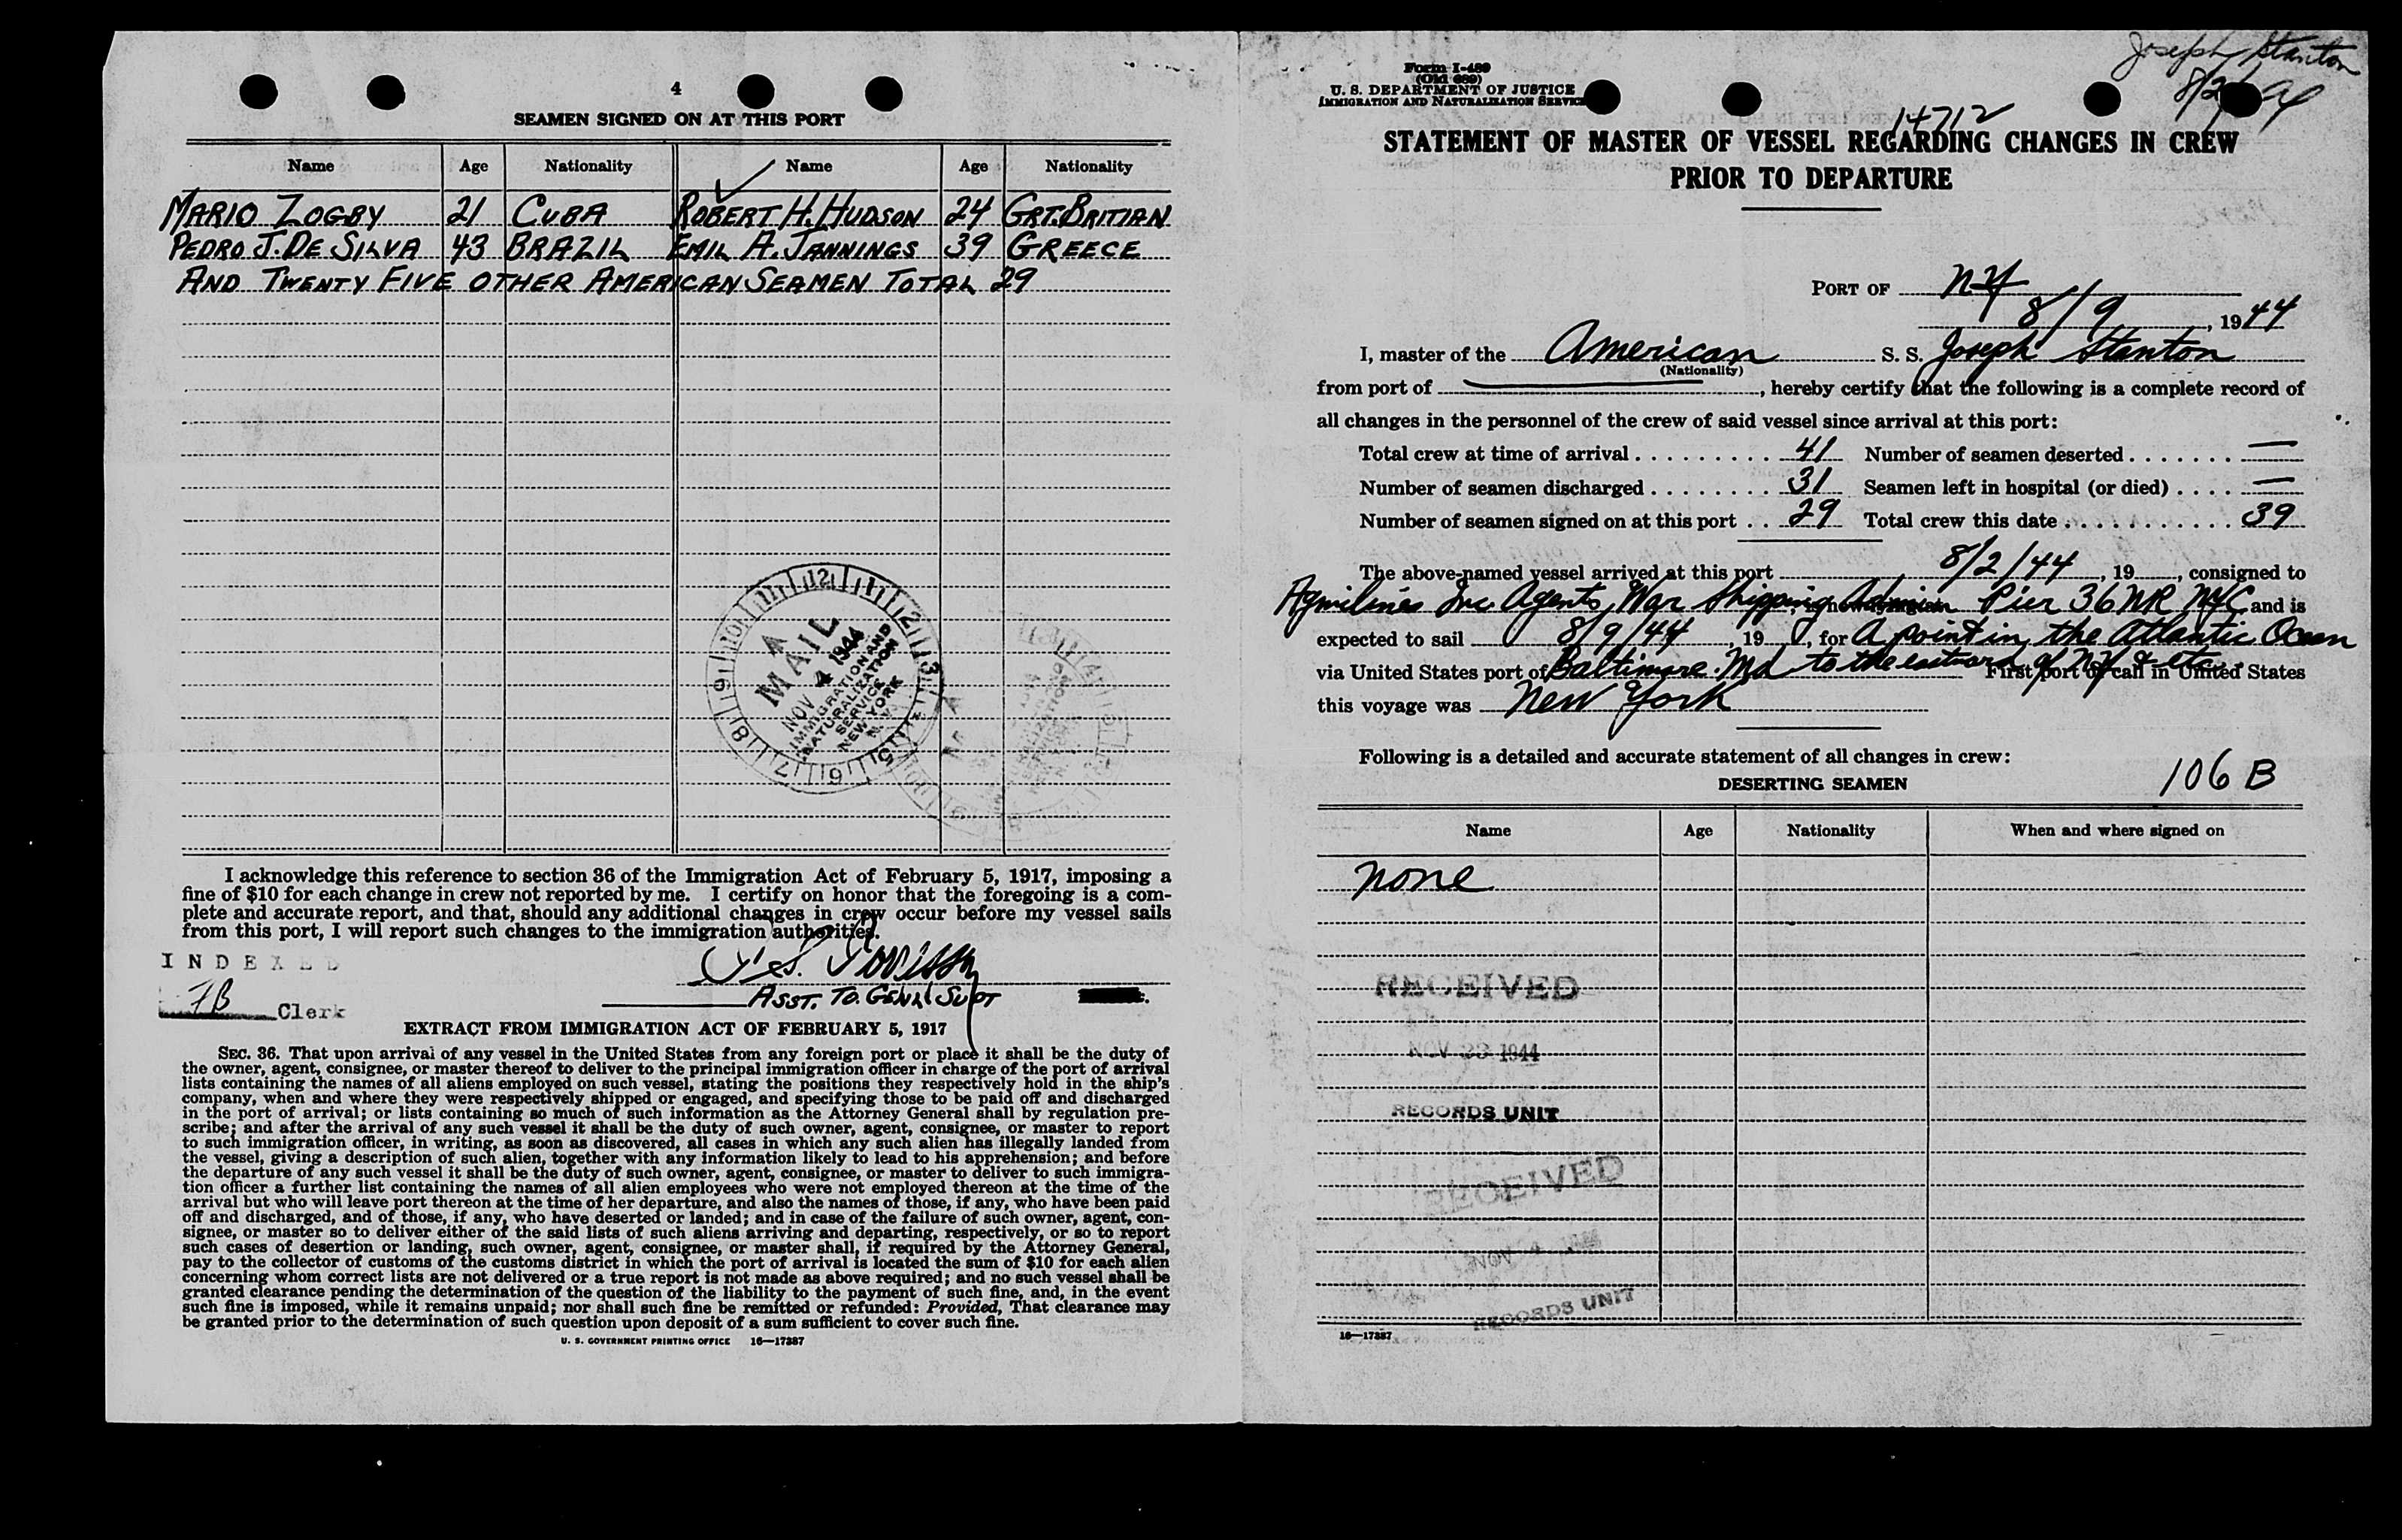 4
SEAMEN SIGNED ON AT THIS PORT
Name Age Nationality Name Age Nationality
MARIO ZOGBY 21 CUBA ROBERT H. HUDSON 24 GRT. BRITIAN
PEDRO J. DE SILVA 43 BRAZIL EMIL A. JANNINGS 39 GREECE
AND TWENTY FIVE OTHER AMERICAN SEAMEN TOTAL 29
MAIL
NOV 4 1944
IMMIGRATION AND
NATURALIZATION
SERVICE
NEW YORK
N.Y.
I acknowledge this reference to section 36 of the Immigration Act of February 5, 1917, imposing a
fine of $10 for each change in crew not reported by me. I certify on honor that the foregoing is a com-
plete and accurate report, and that, should any additional changes in crew occur before my vessel sails
from this port, I will report such changes to the immigration authorities.
INDEXED
Clerk
ASST. TO GENL SUPT
EXTRACT FROM IMMIGRATION ACT OF FEBRUARY 5, 1917
SEC. 36. That upon arrival of any vessel in the United States from any foreign port or place it shall be the duty of
the owner, agent, consignee, or master thereof to deliver to the principal immigration officer in charge of the port of arrival
lists containing the names of all aliens employed on such vessel, stating the positions they respectively hold in the ship's
company, when and where they were respectively shipped or engaged, and specifying those to be paid off and discharged
in the port of arrival; or lists containing so much of such information as the Attorney General shall by regulation pre-
scribe; and after the arrival of any such vessel it shall be the duty of such owner, agent, consignee, or master to report
to such immigration officer, in writing, as soon as discovered, all cases in which any such alien has illegally landed from
the vessel, giving a description of such alien, together with any information likely to lead to his apprehension; and before
the departure of any such vessel it shall be the duty of such owner, agent, consignee, or master to deliver to such immigra-
tion officer a further list containing the names of all alien employees who were not employed thereon at the time of the
arrival but who will leave port thereon at the time of her departure, and also the names of those, if any, who have been paid
off and discharged, and of those, if any, who have deserted or landed; and in case of the failure of such owner, agent, con-
signee, or master so to deliver either of the said lists of such aliens arriving and departing, respectively, or so to report
such cases of desertion or landing, such owner, agent, consignee, or master shall, if required by the Attorney General,
pay to the collector of customs of the customs district in which the port of arrival is located the sum of $10 for each alien
concerning whom correct lists are not delivered or a true report is not made as above required; and no such vessel shall be
granted clearance pending the determination of the question of the liability to the payment of such fine, and, in the event
such fine is imposed, while it remains unpaid; nor shall such fine be remitted or refunded: Provided, That clearance may
be granted prior to the determination of such question upon deposit of a sum sufficient to cover such fine.
U. S. GOVERNMENT PRINTING OFFICE 16—17387
Joseph Stanton
Form I-489
(Old 689)
U. S. DEPARTMENT OF JUSTICE
IMMIGRATION AND NATURALIZATION SERVICE
14712
STATEMENT OF MASTER OF VESSEL REGARDING CHANGES IN CREW
PRIOR TO DEPARTURE
PORT OF NY
8/9, 1944
I, master of the American S. S. Joseph Stanton
(Nationality)
from port of , hereby certify that the following is a complete record of
all changes in the personnel of the crew of said vessel since arrival at this port:
Total crew at time of arrival 41 Number of seamen deserted —
Number of seamen discharged 31 Seamen left in hospital (or died) —
Number of seamen signed on at this port 29 Total crew this date 39
The above-named vessel arrived at this port 8/2/44, 19 , consigned to
Agwilines Inc Agents, War Shipping Admin Pier 36 NR NYC and is
expected to sail 8/9/44, 19 , for A point in the Atlantic Ocean
via United States port of Baltimore. Md to the eastward of NY & etc. First port of call in United States
this voyage was New York
Following is a detailed and accurate statement of all changes in crew:
106 B
DESERTING SEAMEN
Name Age Nationality When and where signed on
none
RECEIVED
NOV 23 1944
RECORDS UNIT
RECEIVED
NOV 4
RECORDS UNIT
16—17387